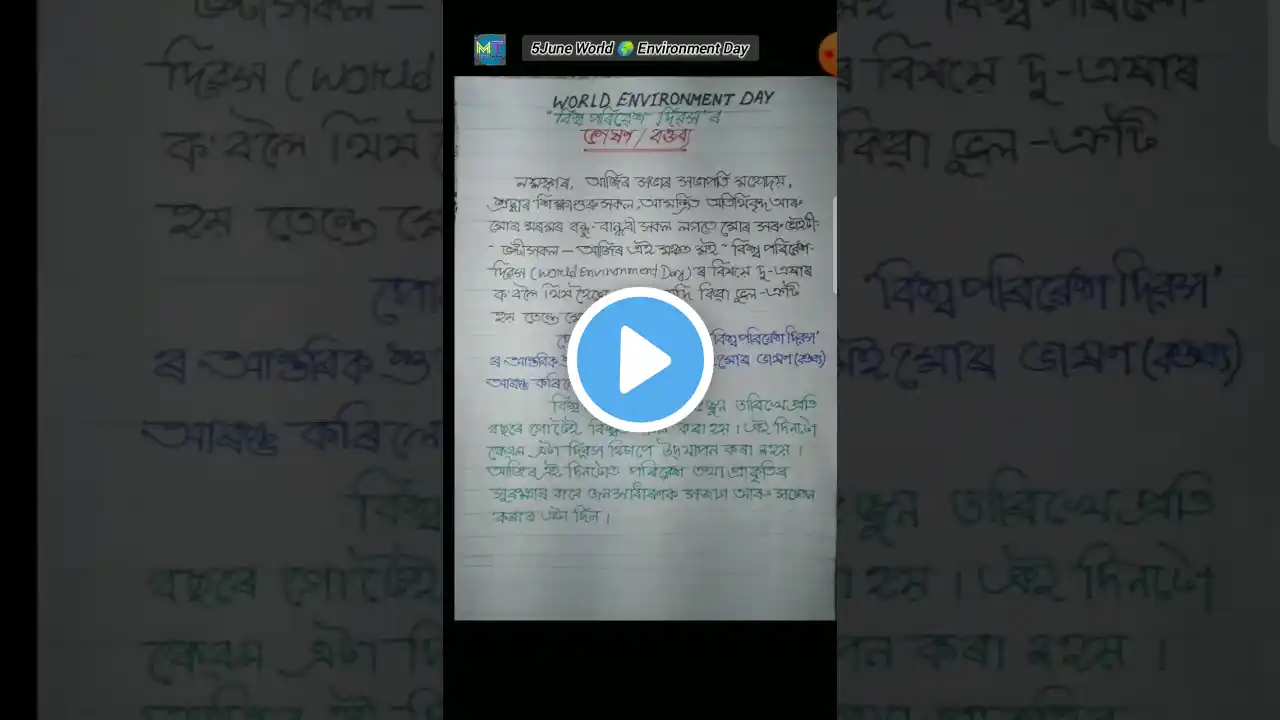 MT
5June World 🌍 Environment Day
WORLD ENVIRONMENT DAY
"বিশ্ব পৰিৱেশ দিৱস"ৰ
ভাষণ / বক্তব্য
নমস্কাৰ, আজিৰ সভাৰ সভাপতি মহোদয়,
শ্ৰদ্ধাৰ শিক্ষাগুৰুসকল, আমন্ত্ৰিত অতিথিবৃন্দ আৰু
মোৰ মৰমৰ বন্ধু-বান্ধৱী সকল লগতে মোৰ সৰু ভাইটী-
ভন্টীসকল — আজিৰ এই মঞ্চত মই "বিশ্ব পৰিৱেশ-
দিৱস (World Environment Day)ৰ বিষয়ে দু-এষাৰ
ক'বলৈ থিয় হৈছো যদি কিবা ভুল-ত্ৰুটি
হয় তেন্তে
'বিশ্ব পৰিৱেশ দিৱস'
ৰ আন্তৰিক মোৰ ভাষণ (বক্তব্য)
আৰম্ভ কৰিলো
বিশ্ব জুন তাৰিখে প্ৰতি
বছৰে গোটেই বিশ্বত কৰা হয়। এই দিনটো
কেৱল এটা দিৱস হিচাপে উদযাপন কৰা নহয়।
আজিৰ এই দিনটোত পৰিৱেশ তথা প্ৰাকৃতিৰ
সুৰক্ষাৰ বাবে জনসাধাৰণক সজাগ আৰু সচেতন
কৰাৰ এটা দিন।